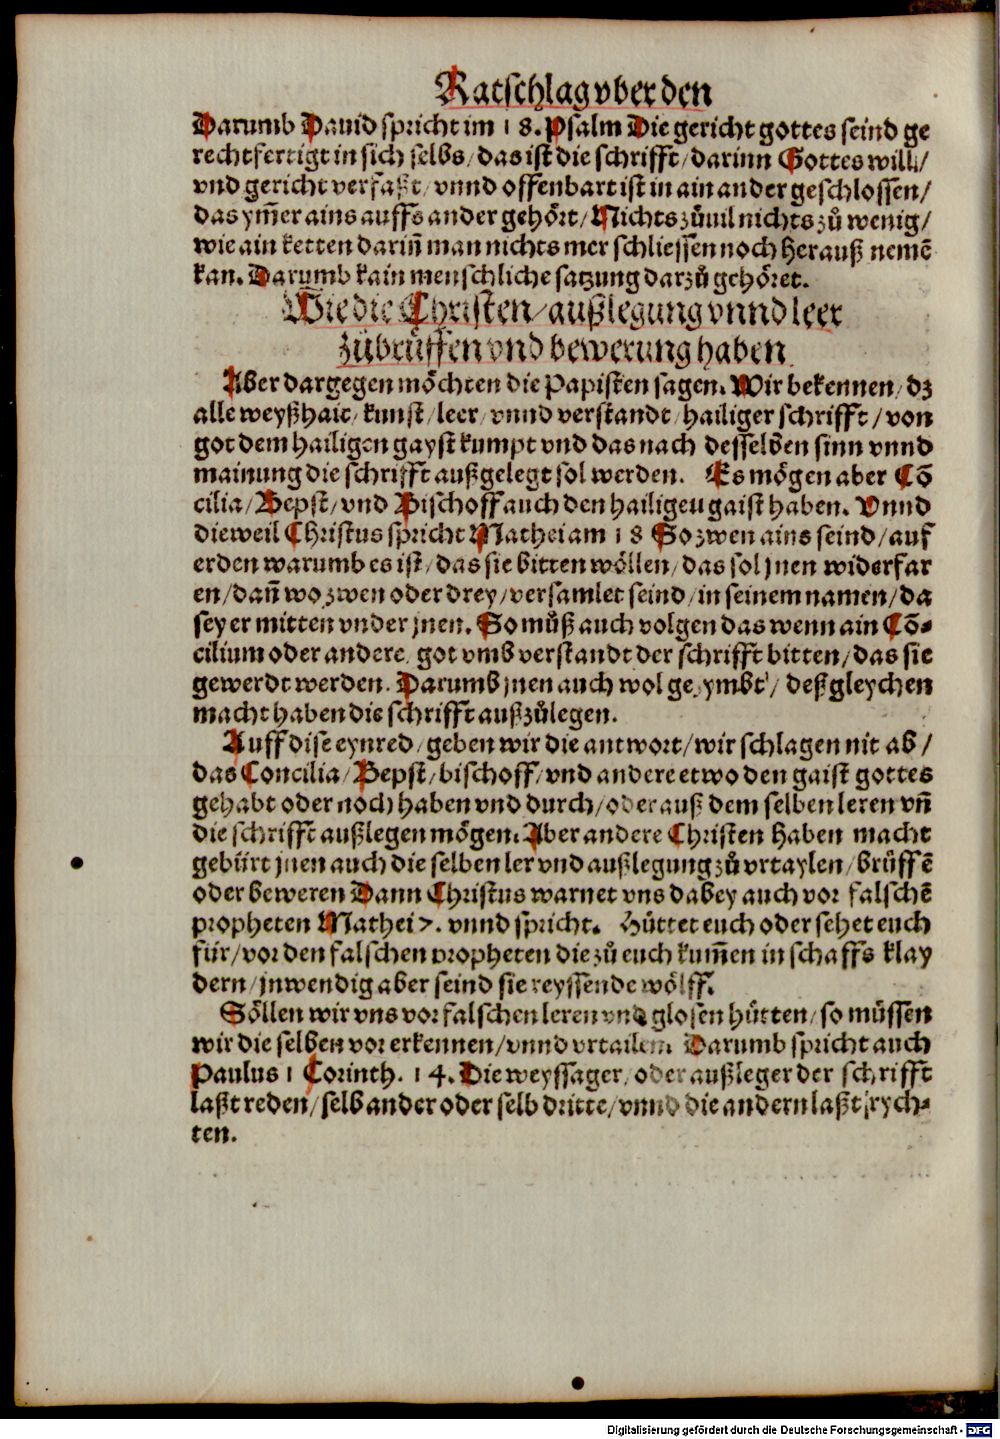 Ratschlag vber den
Darumb Dauid spricht im 18. Psalm Die gericht gottes seind ge
rechtfertigt in sich selbs/ das ist die schrifft/ darinn Gottes will/
vnd gericht verfaßt/ vnnd offenbart ist in ain ander geschlossen/
das ym̃er ains auffs ander gehört/ Nichts zůuil nichts zů wenig/
wie ain ketten dariñ man nichts mer schliessen noch herauß nemē
kan. Darumb kain menschliche satzung darzů gehöret.
Wie die Christen/ außlegung vnnd leer
zůbrůffen vnd bewerung haben
Aber dargegen möchten die Papisten sagen. Wir bekennen/ dz
alle weyßhait/ kunst/ leer/ vnnd verstandt/ hailiger schrifft/ von
got dem hailigen gayst kumpt vnd das nach desselben sinn vnnd
mainung die schrifft außgelegt sol werden. Es mögen aber Cō
cilia/ Bepst/ vnd Bischoff auch den hailigeu gaist haben. Vnnd
dieweil Christus spricht Mathei am 18 So zwen ains seind/ auf
erden warumb es ist/ das sie bitten wöllen/ das sol jnen widerfar
en/ dañ wo zwen oder drey/ versamlet seind/ in seinem namen/ da
sey er mitten vnder jnen. So můß auch volgen das wenn ain Cō-
cilium oder andere/ got vmb verstandt der schrifft bitten/ das sie
gewerdt werden. Darumb jnen auch wol gezymbt/ deßgleychen
macht haben die schrifft außzůlegen.
Auff dise eynred/ geben wir die antwort/ wir schlagen nit ab/
das Concilia/ Bepst/ bischoff/ vnd andere etwo den gaist gottes
gehabt oder noch haben vnd durch/ oder auß dem selben leren vñ
die schrifft außlegen mögen. Aber andere Christen haben macht
gebürt jnen auch die selben ler vnd außlegung zů vrtaylen/ brüffē
oder beweren Dann Christus warnet vns dabey auch vor falschē
propheten Mathei 7. vnnd spricht. Hüttet euch oder sehet euch
für/ vor den falschen propheten die zů euch kum̃en in schaffs klay
dern/ jnwendig aber seind sie reyssende wölff.
Söllen wir vns vor falschen leren vnd glosen hůtten/ so müssen
wir die selben vor erkennen/ vnnd vrtailen. Darumb spricht auch
Paulus 1 Corinth. 14. Die weyssager/ oder außleger der schrifft
laßt reden/ selb ander oder selb dritte/ vnnd die andern laßt rych-
ten.
Digitalisierung gefördert durch die Deutsche Forschungsgemeinschaft - DFG